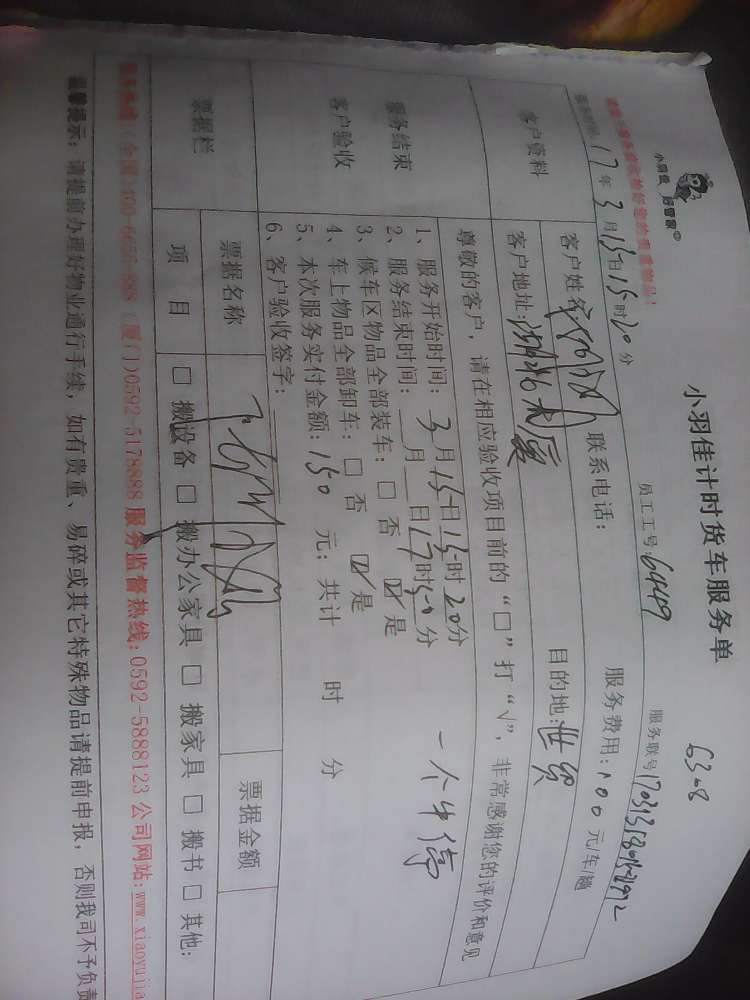 小羽佳 好管家®
小羽佳计时货车服务单
6308
员工工号:64449
服务联号
17年3月15日15时20分
客户资料
客户姓名
联系电话:
服务费用:100元/车/趟
客户地址:湖北大厦
目的地:世贸
服务结束
客户验收
尊敬的客户，请在相应验收项目前的“□”打“√”，非常感谢您的评价和意见
1、服务开始时间: 3月15日15时20分
2、服务结束时间:__月__日17时50分
一个半停
3、候车区物品全部装车: □ 否 ☑ 是
4、车上物品全部卸车: □ 否 ☑ 是
5、本次服务实付金额:150 元; 共计 时 分
6、客户验收签字:
票据栏
票据名称
票据金额
项 目
□ 搬设备 □ 搬办公家具 □ 搬家具 □ 搬书 □ 其他:
(厦门)0592-5178888 服务监督热线:0592-5888123 公司网站:www.xiaoyujia
温馨提示: 请提前办理好物业通行手续, 如有贵重、易碎或其它特殊物品请提前申报, 否则我司不予负责